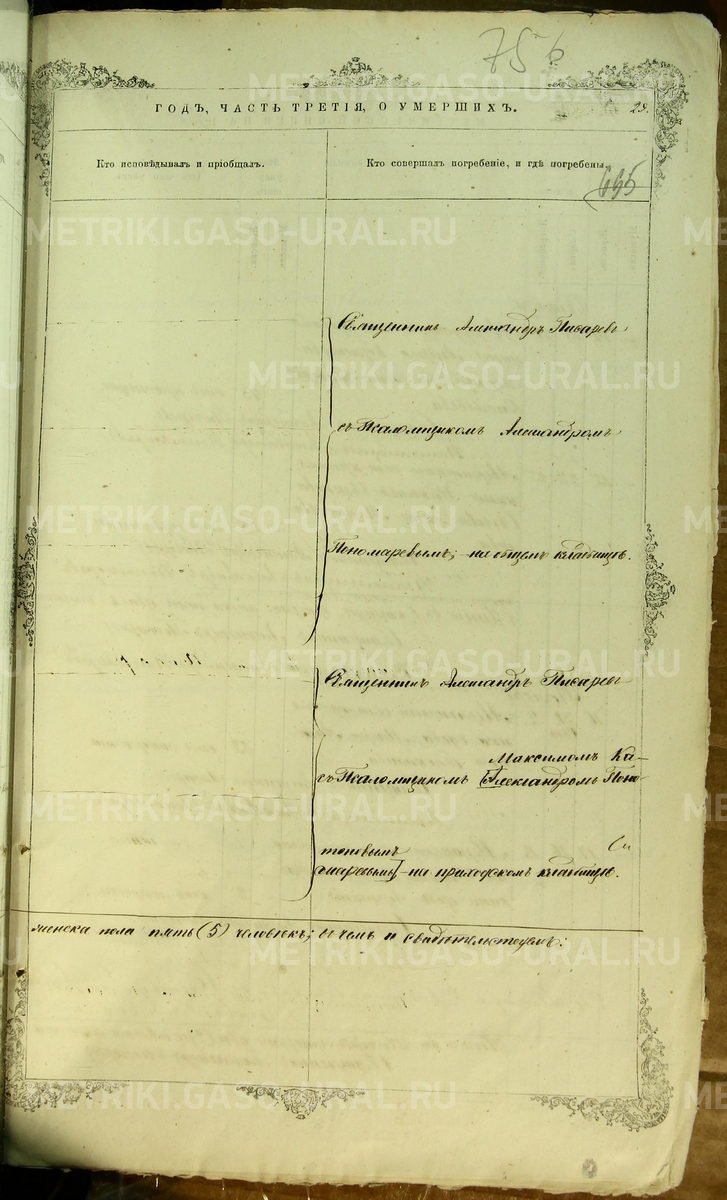 75 б
ГОДЪ, ЧАСТЬ ТРЕТІЯ, О УМЕРШИХЪ. 29.
Кто исповѣдывалъ и пріобщалъ. Кто совершалъ погребеніе, и гдѣ погребены.
695
Священникъ Александръ Писаревъ
съ Псаломщикомъ Александромъ
Пономаревымъ; на общемъ кладбищѣ.
Священникъ Александръ Писаревъ
Максимомъ Ка-
съ Псаломщикомъ [Александромъ Поно-
тоновымъ
маревымъ] на приходскомъ кладбищѣ.
женска пола пять (5) человѣкъ; въ чемъ и свидѣтельствуемъ:
METRIKI.GASO-URAL.RU